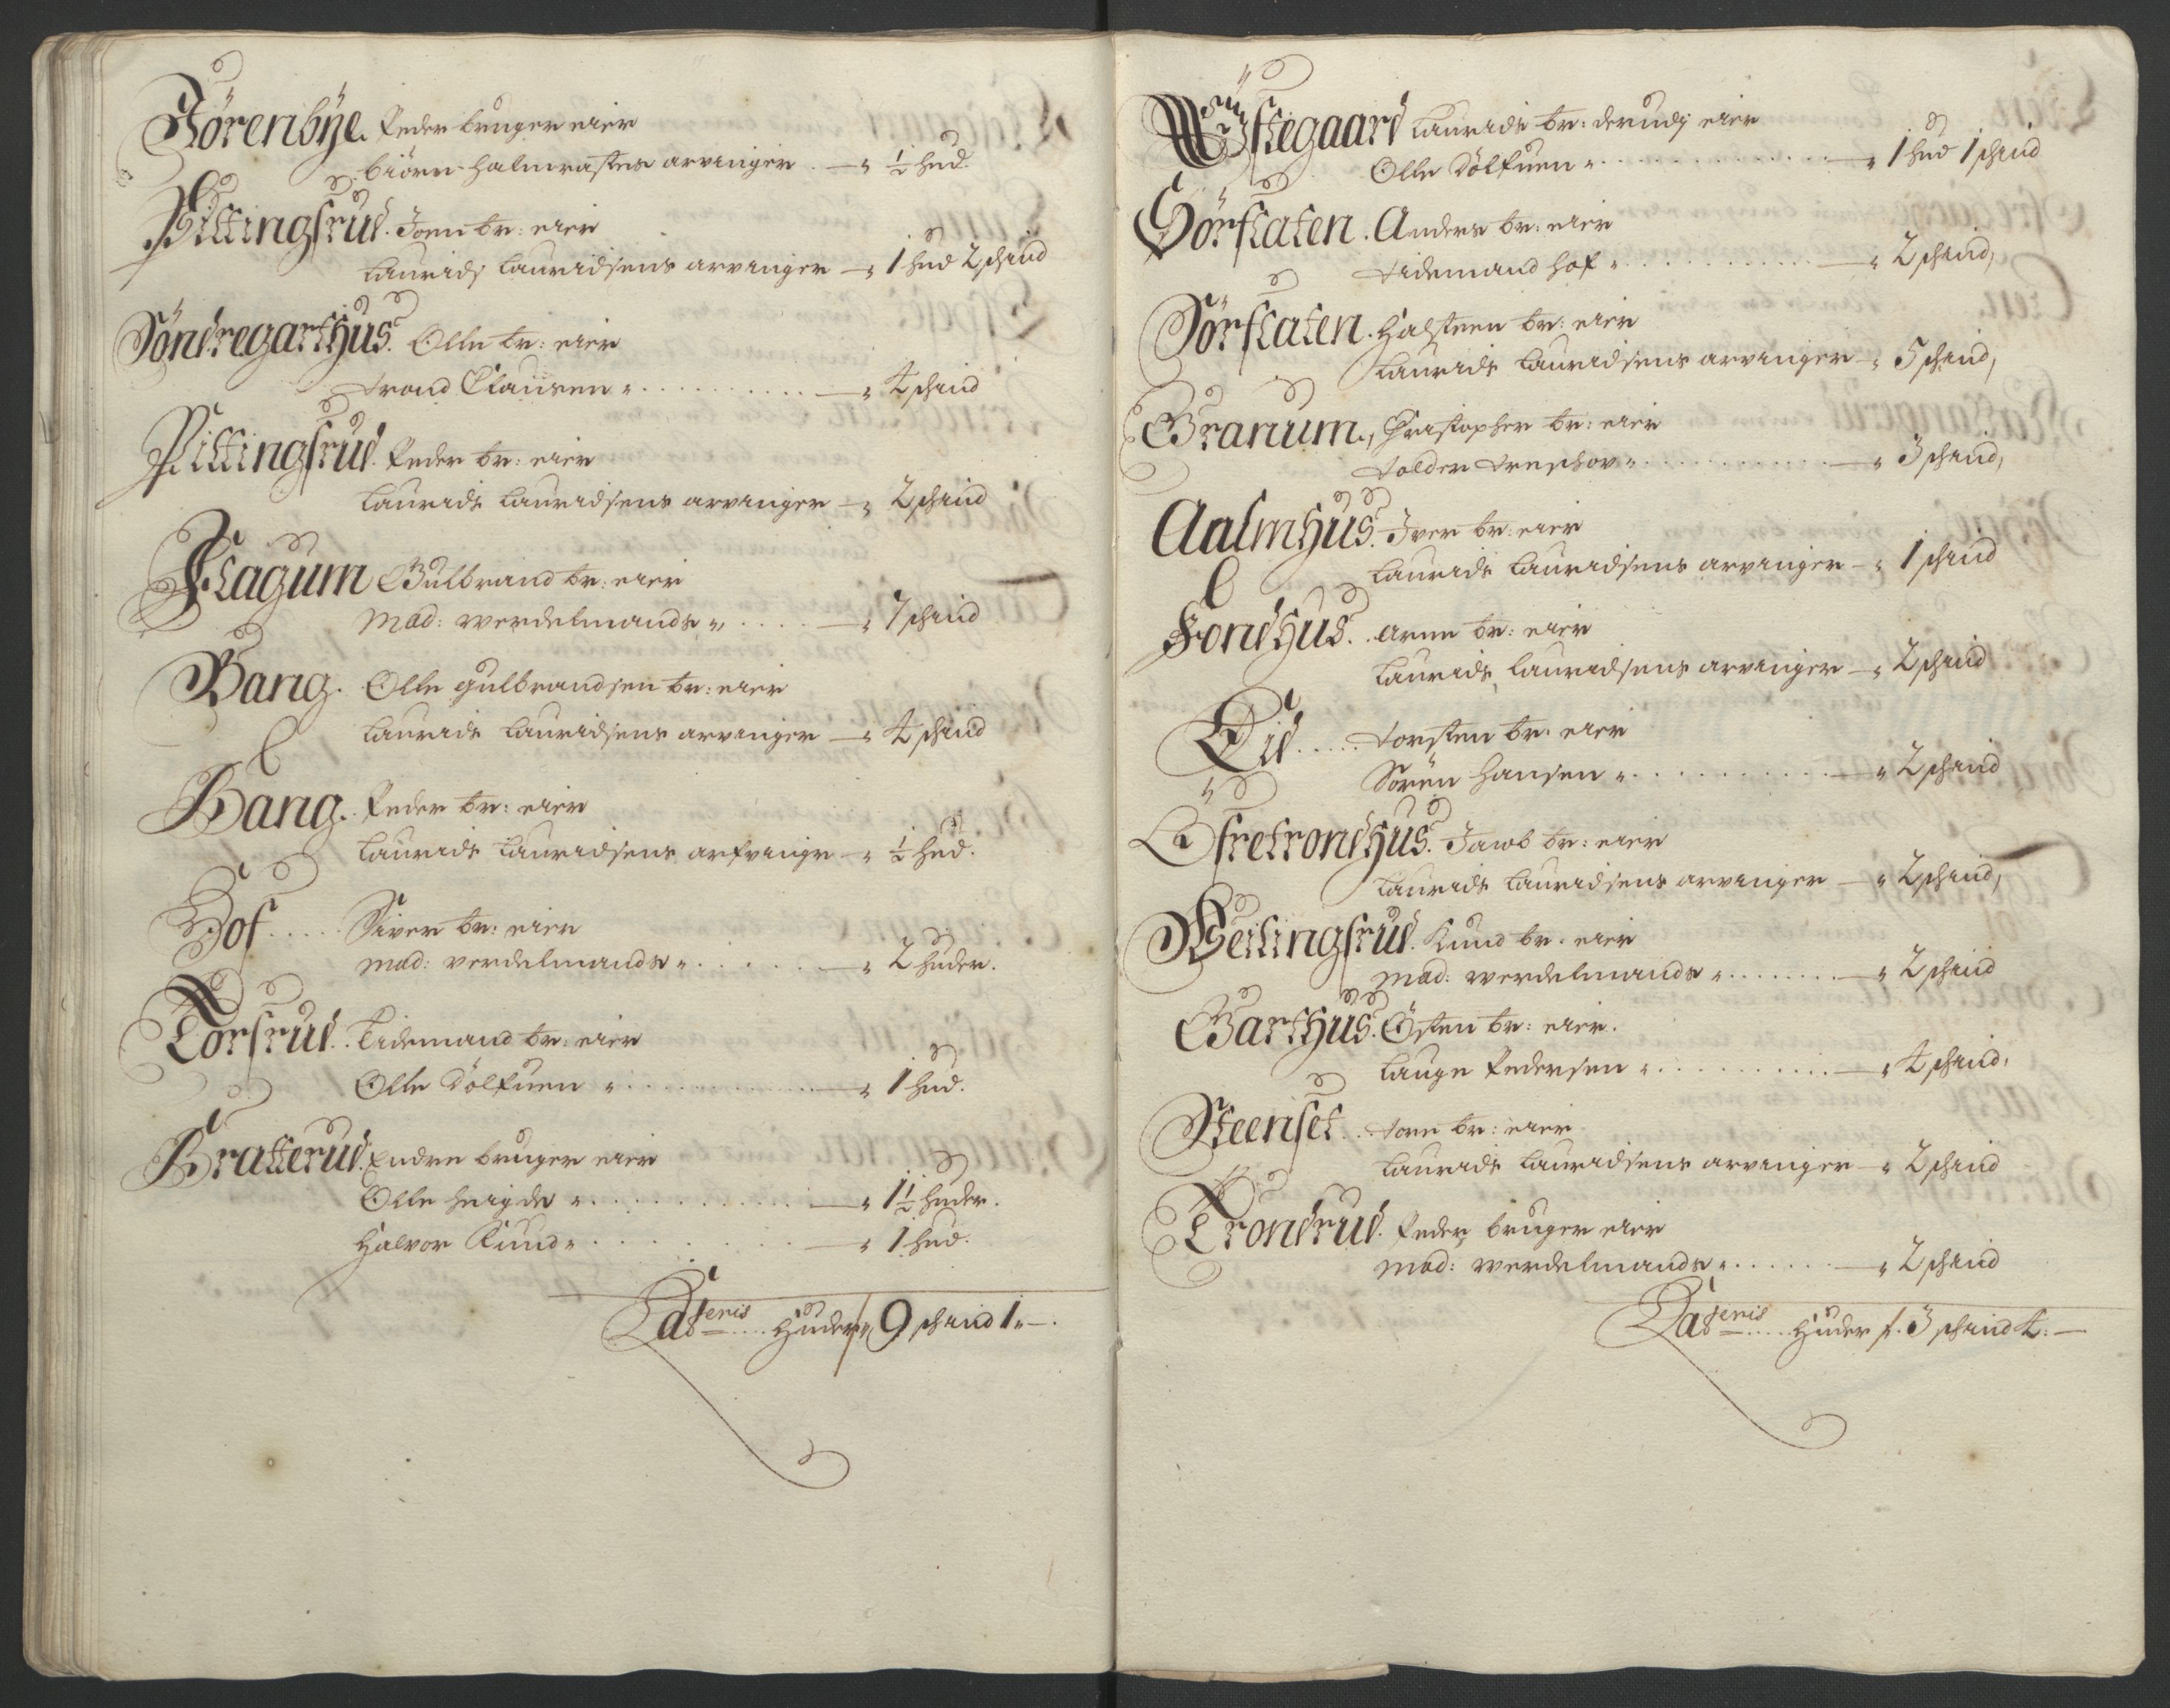 Sörenbÿe. Peder bruger eier
biörn halmrastes arvinger . — „ ½ hud.
Kittingsrud. Joen br: eier
Lauridz Lauridsens arvinger — „ 1 hud 2 skind
Söndregarthus. Olle br: eier
trond Clausen „ . . . . . . . — „ 4 skind
Kittingsrud. Peder br: eier
Laurids Lauridsens arvinger — „ 2 skind
Flagum Gulbrand br: eier
Mad: werdelmands „ . . . . — „ 7 skind
Bang. Olle gulbrandsen br: eier
Laurids Lauridsens arvinger — „ 4 skind
Bang. Peder br: eier
Laurids Lauridsens arfvinger — „ ½ hud.
Hof . . . . . Siver br: eier
mad: verdelmands „ . . . . . . — „ 2 huder.
Torsrud. Tidemand br: eier
Olle Dölfuen „ . . . . . . . . — „ 1 hud.
Bratterud. Endre bruger eier
Olle heigde „ . . . . . . . . — „ 1½ huder.
Halvor Kund „ . . . . . . . . — „ 1 hud.
Lateris . . . . huder „ 9 skind 1 „ — .
Öfstegaard Laurids br: derudj eier
Olle Dölfuen „ . . . . . . . . — „ 1 hud 1 skind
Sörflaten. Anders br: eier
tidemand hof „ . . . . . . . . — „ 2 skind,
Sörflaten. Halsteen br: eier
Laurids Lauridsens arvinger — „ 5 skind,
Granum., Christopher br: eier
tolder treschov „ . . . . . . . — „ 3 skind,
Aalmhus. Iver br: eier
Laurids Lauridsens arvinger — „ 1 skind
Fondhus. . arne br: eier
Laurids Lauridsens arvinger — „ 2 skind
Eid . . . . . torsten br: eier
Sören hansen „ . . . . . . . . — „ 2 skind
Öfretrondhus. Jacob br: eier
Laurids Lauridsens arvinger — „ 2 skind,
Geilingsrud. Kund br: eier
mad: werdelmands „ . . . . . . — „ 2 skind
Garthus. Östen br: eier.
Lauge Pedersen „ . . . . . . . — „ 4 skind.
Steenset . . tore br: eier
Laurids Lauridsens arvinger — „ 2 skind
Trondrud. Peder bruger eier
mad: werdelmands „ . . . . . . — „ 2 skind
Lateris . . . . huder /. 3 skind 4. —